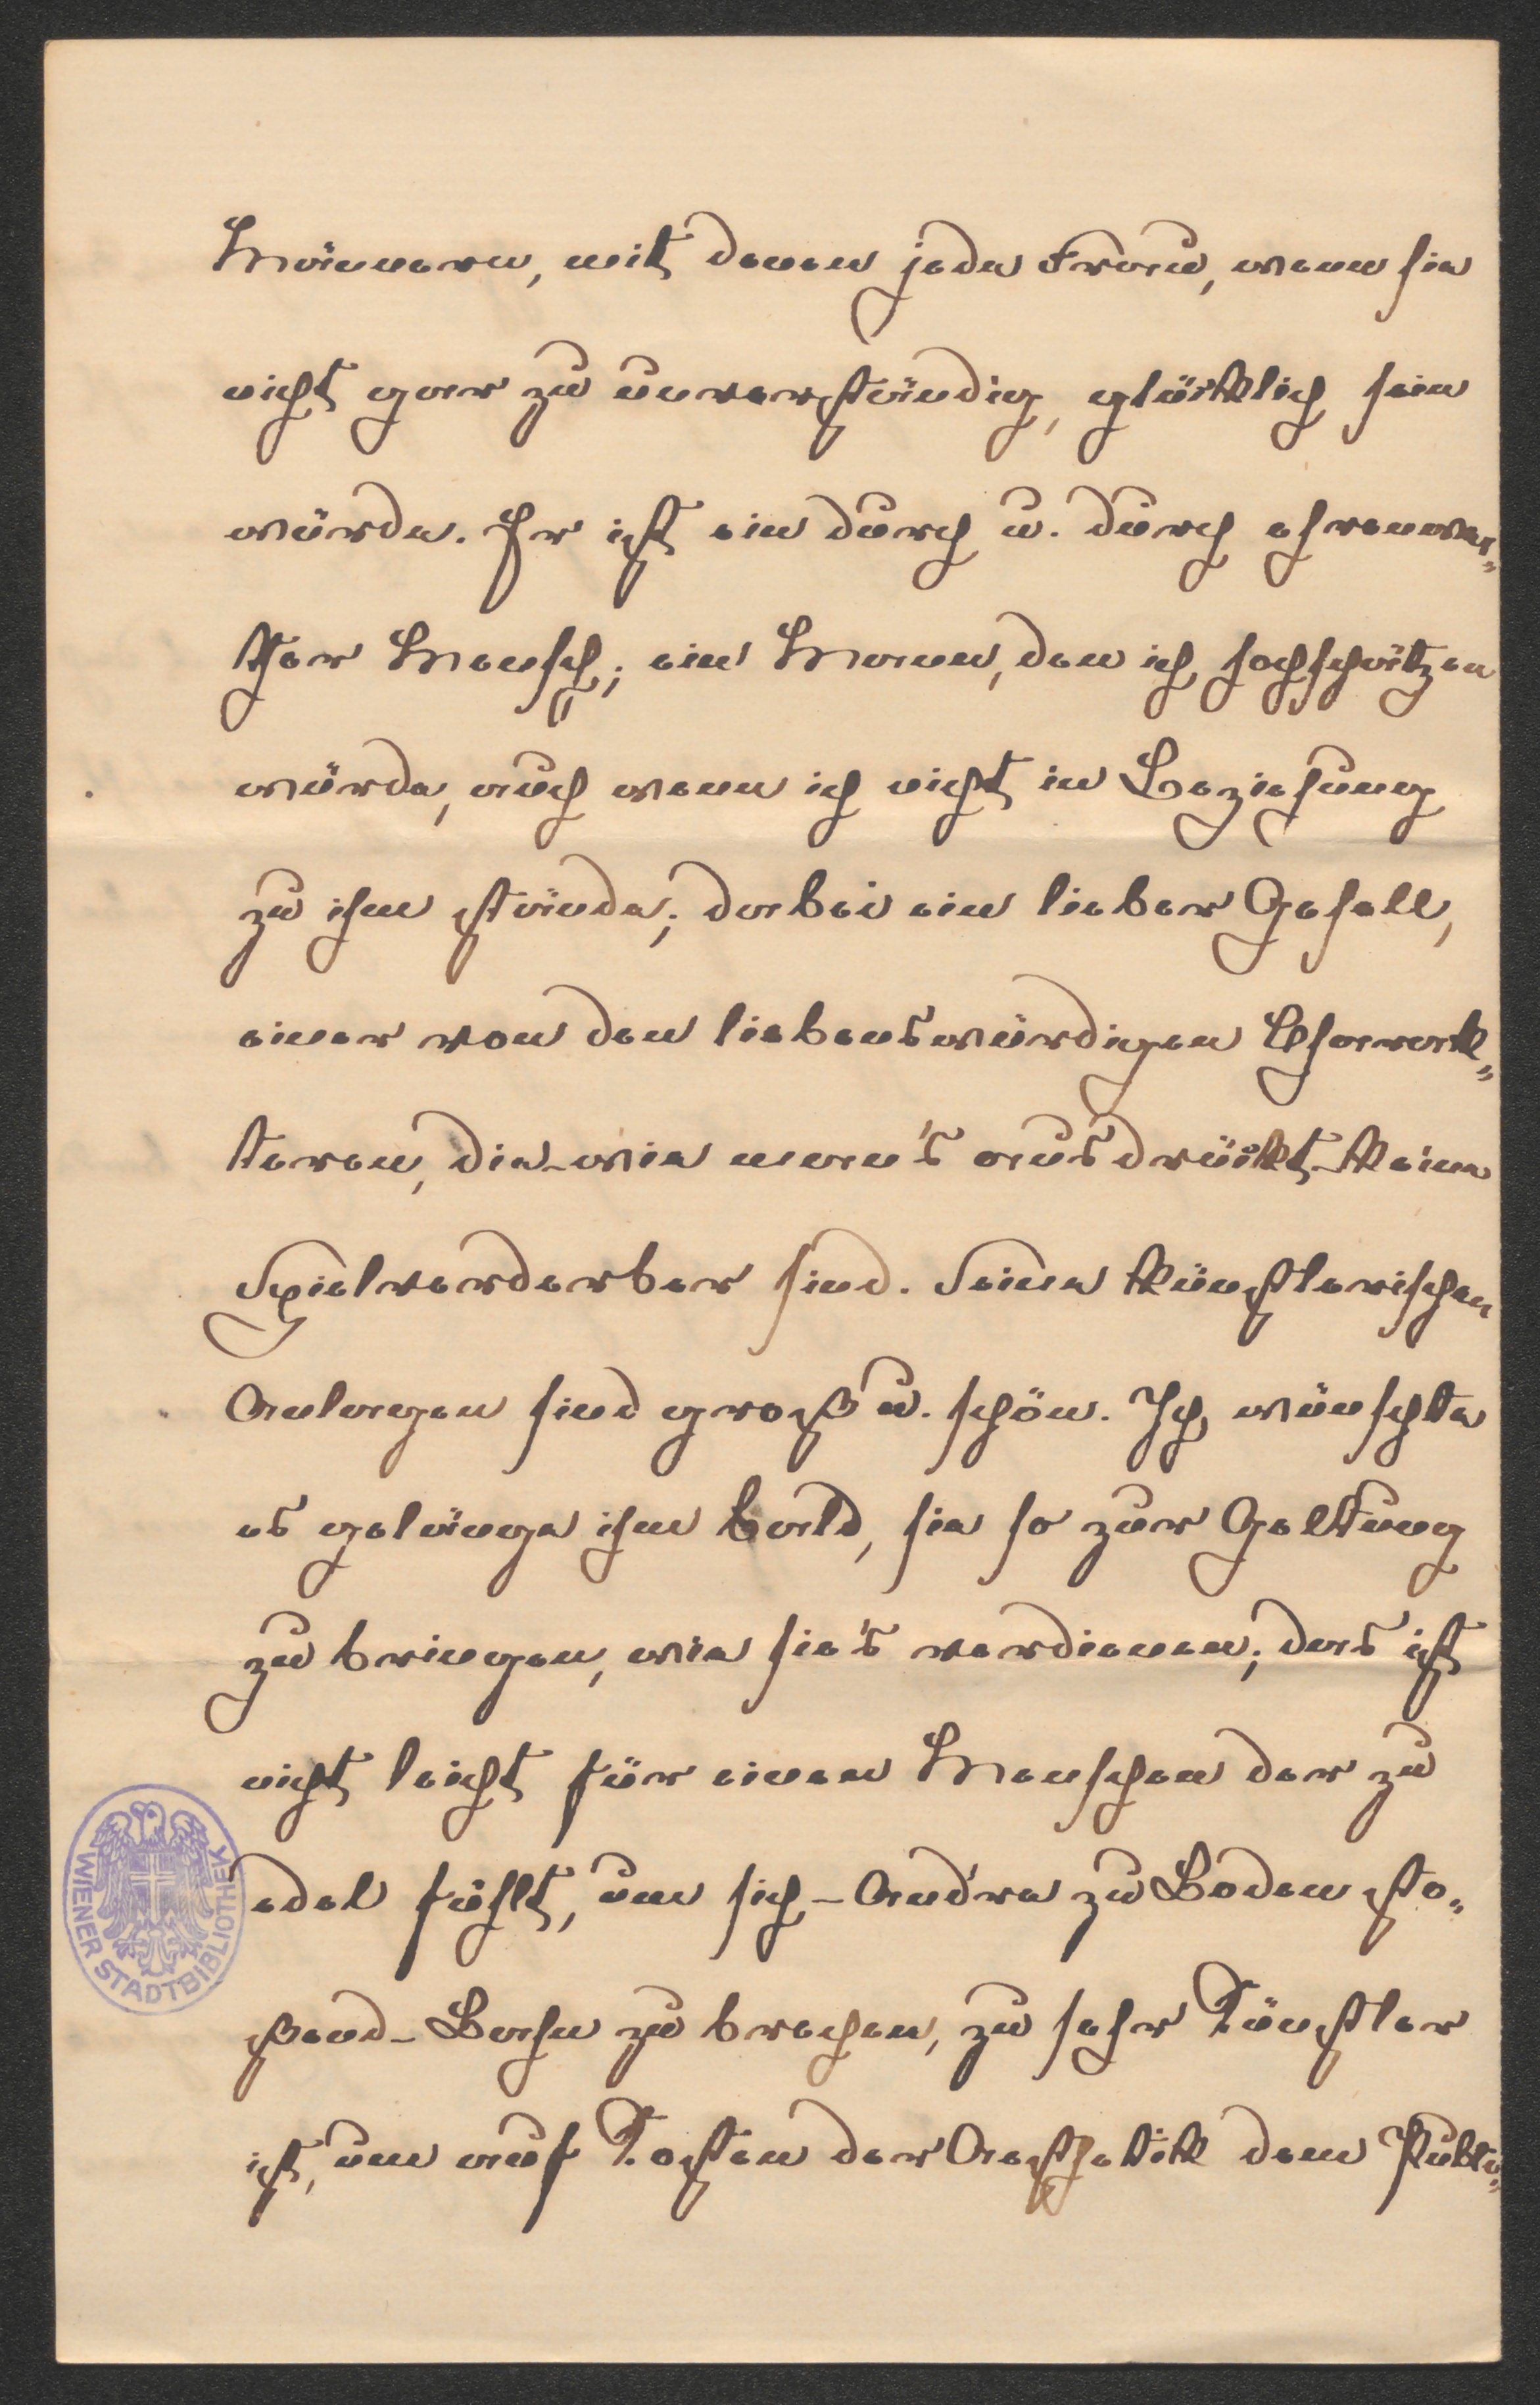 Männern, mit denen jede Frau, wenn sie
nicht gar zu unverständig, glücklich sein
würde. Er ist ein durch u. durch ehrenwer„
ther Mensch; ein Mann, den ich hochschätzen
würde, auch wenn ich nicht in Beziehung
zu ihm stände; dabei ein lieber Gesell,
einer von den liebenswürdigen Charak„
teren, die - wie man's ausdrückt - keine
Spielverderber sind. Seine künstlerischen
Anlagen sind groß u. schön. Ich wünschte
es gelänge ihm bald, sie so zur Geltung
zu bringen, wie sie's verdienen; das ist
nicht leicht für einen Menschen der zu
edel fühlt, um sich - And're zu Boden sto„
ßend - Bahn zu brechen, zu sehr Künstler
ist, um auf Kosten der Aesthetik dem Publi„
WIENER STADTBIBLIOTHEK